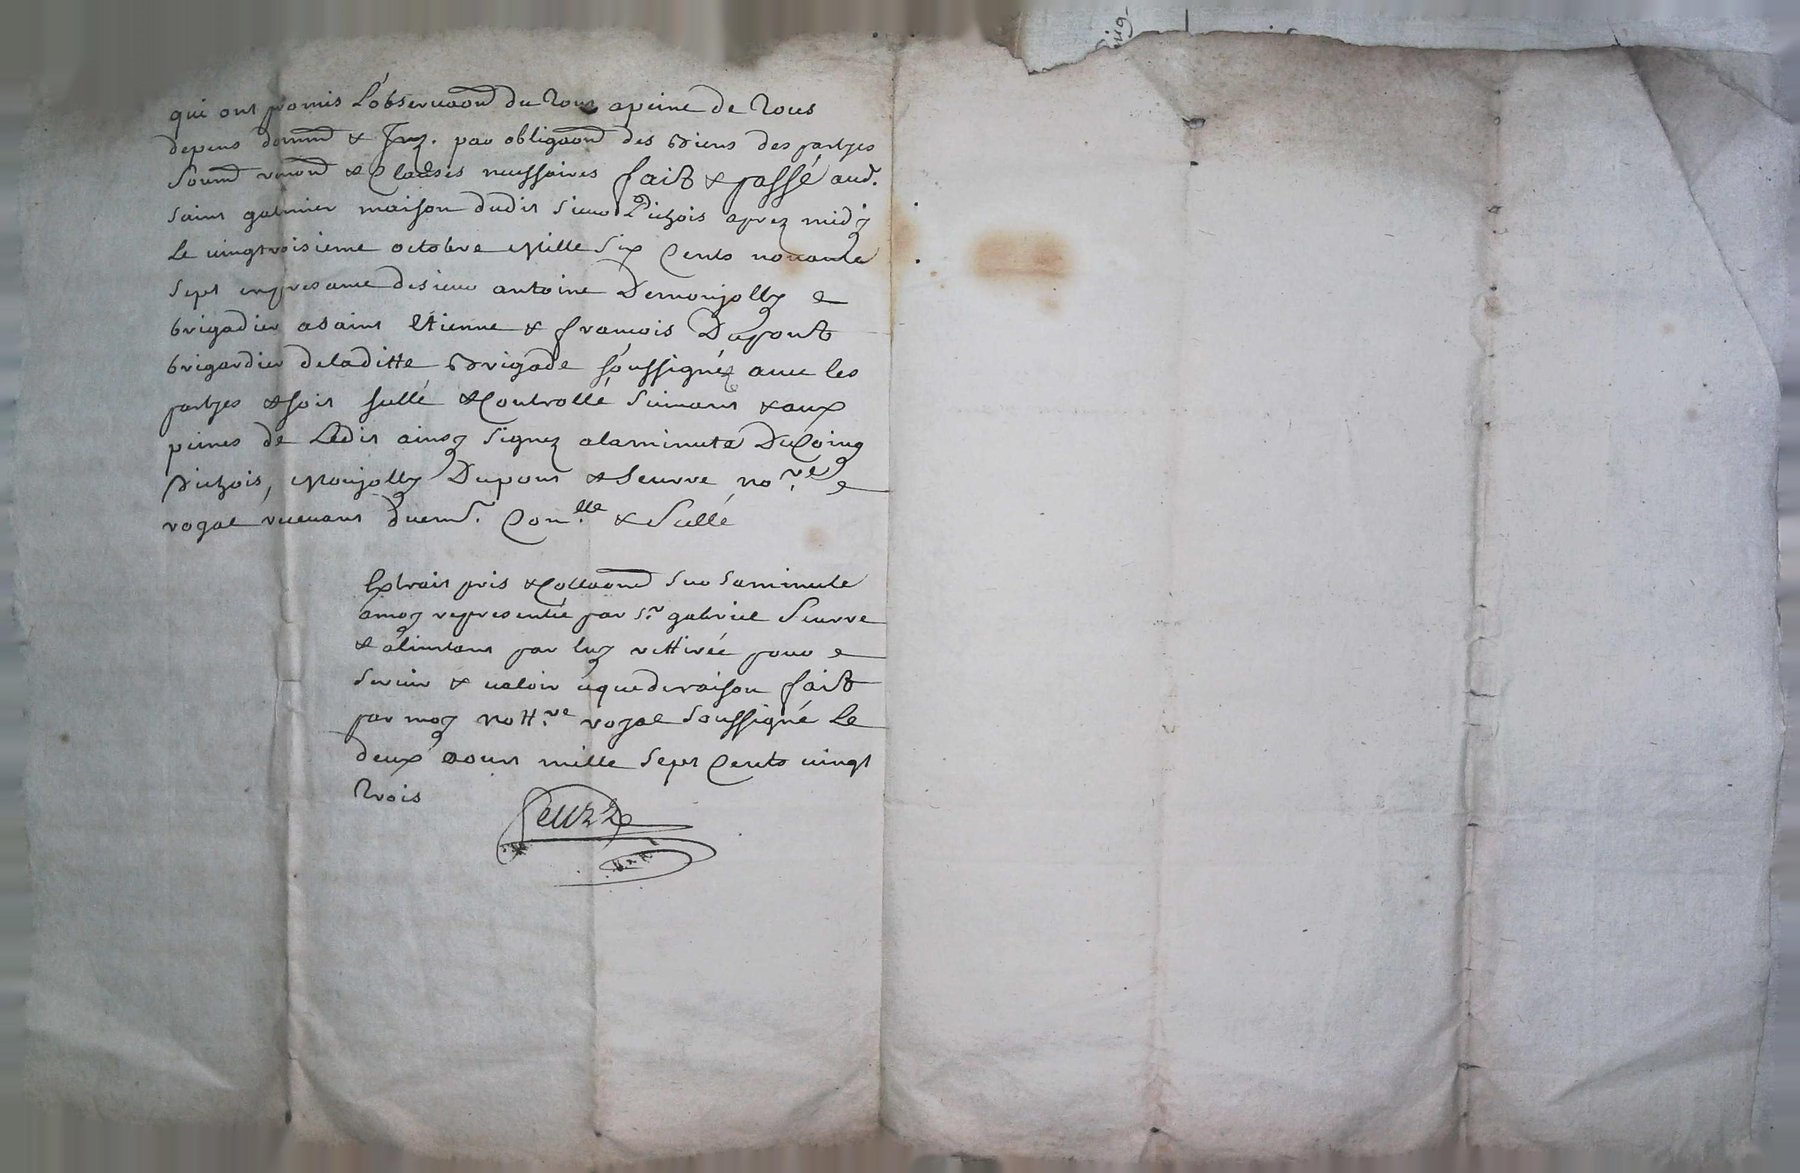 qui ont promis L'observaon du Tout a peine de Tous
depens domm & Inz. par obligaon des biens des partyes
soumd renond & Clauses necessaires fait & passé aud.
saint galmier maison dudit sieur Pichois aprez midy
Le vingtroisieme octobre Mille Six Cents nonante
sept en presance de sieur antoine Demonjolly
brigadier a saint Etienne & francois Dupont
brigardier de laditte Brigade soussignéz avec les
partyes & soit sellé & Controllé suivant & aux
peines de Ledit ainsy signez a la minute Ducoing
Pichois, Monjolly Dupont & Seurre no.re
royal recevant duemt. Con.lle & Sellé
Extrait pris & Collaonné sur sa minute
a moy representée par Sr. gabriel Seurre
& a linstant par luy rettirée pour
servir & valoir ce que de raison fait
par moy nott.re royal soussigné Le
deux aoust mille sept Cents vingt
Trois
Seurre